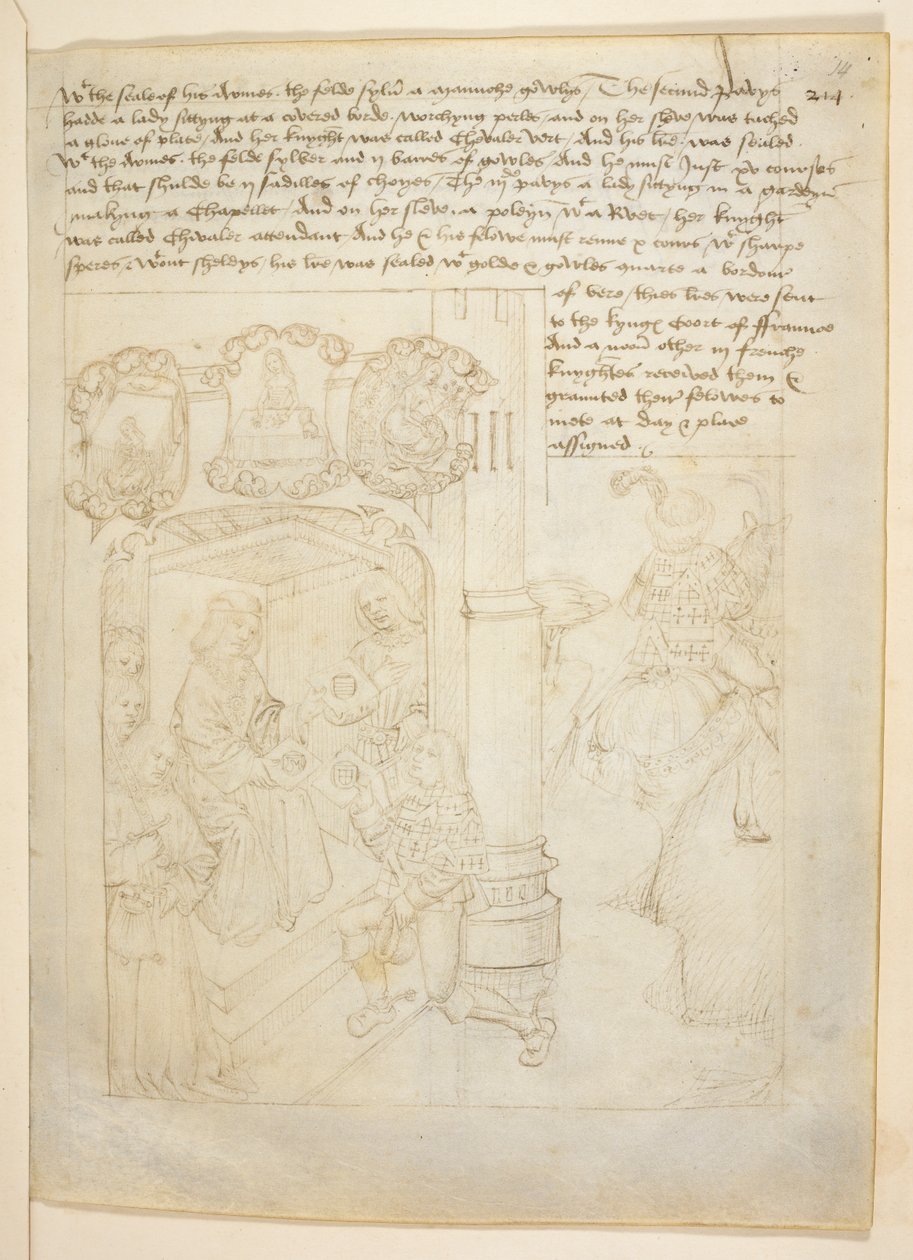 14
214.
Wt the seale of his Armes . the felde sylv̄ a maunche gowlys / The second Pavys
hadde a lady sittyng at a covered borde . worchyng perles . and on her sleve was tached
a glove of plate / And her knyght was called Chevaler vert / And his lr̄e . was sealed
Wt the Armes . the felde sylver and ij barres of gowles . And he must Just xv courses
and that shulde be ij sadilles of choyes / The iijde pavys a lady sittyng in a gardeyn
makyng a Chapellet . And on her sleve a poleyn wt a Rvet / her knyght
was called Chivaler attendant . And he & his felowe must renne x cours wt sharpe
speres wtout sheldys / his lr̄e was sealed wt golde & gowles quarte a bordour
of vere / thies lr̄es were sent
to the kyngꝭ Coort of ffraunce
And a noon̄ other iij frenche
knyghtes received them &
graunted their felowes to
mete at day & place
assigned .